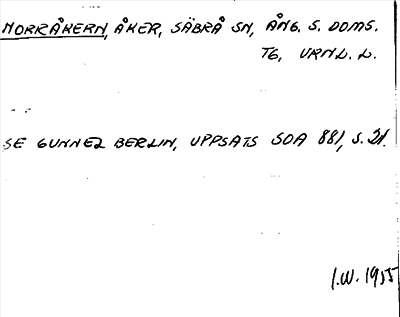 NORRÅKERN, ÅKER, SÄBRÅ SN, ÅNG. S. DOMS.
TG, URNL. L.
SE GUNNEL BERLIN, UPPSATS SOA 881, S. 21.
I.W. 1955